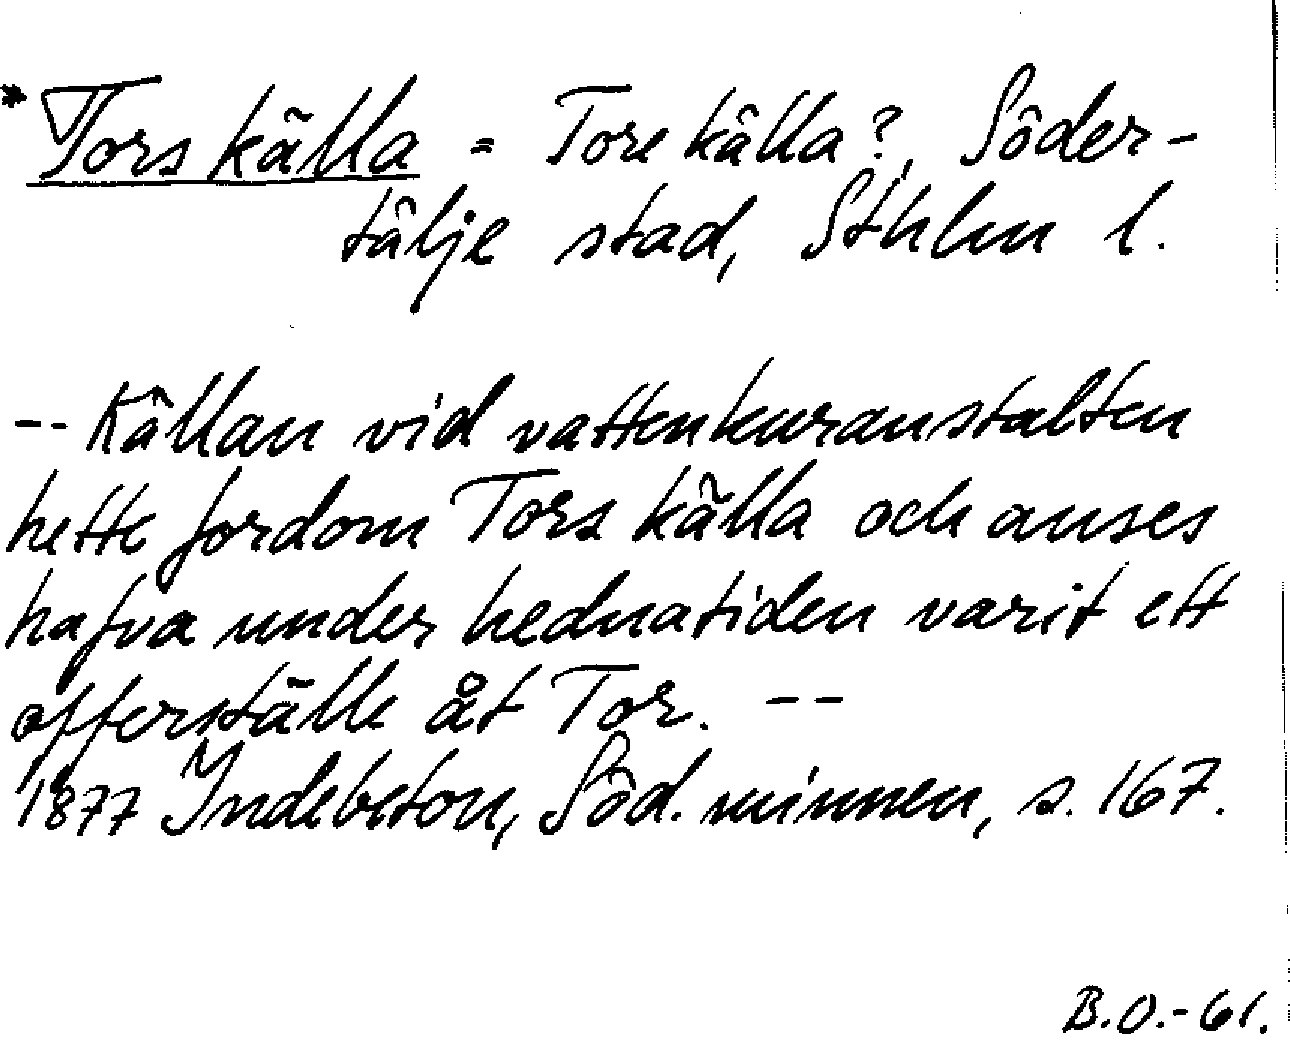 * Tors källa = Tore källa?, Söder-
tälje stad, Sthlm l.
-- Källan vid vattenkuranstalten
hette fordom Tors källa och anses
hafva under hednatiden varit ett
offerställe åt Tor. --
1877 Indebetou, Söd. minnen, s. 167.
B.O.-61.